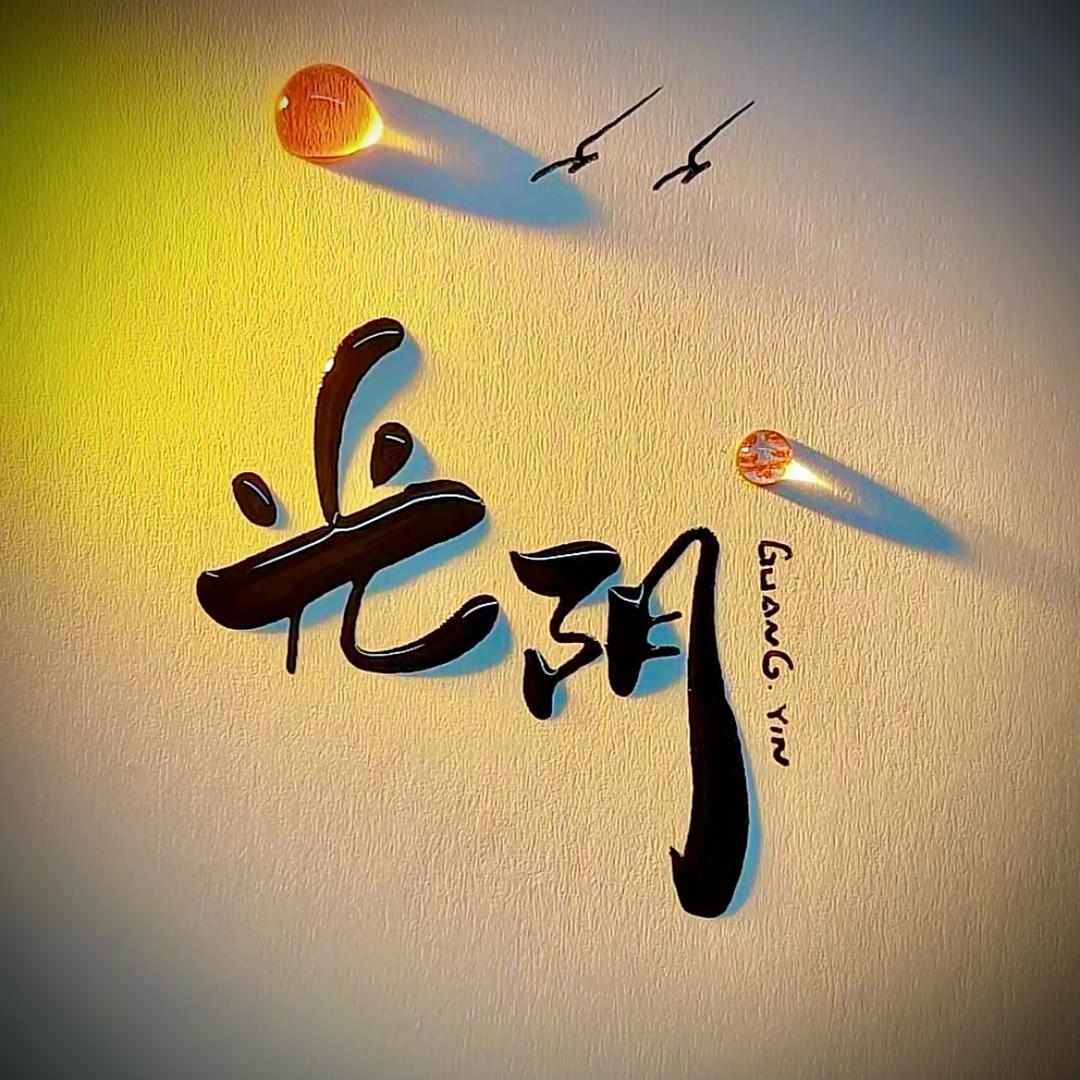 光阴
GUANG. YIN